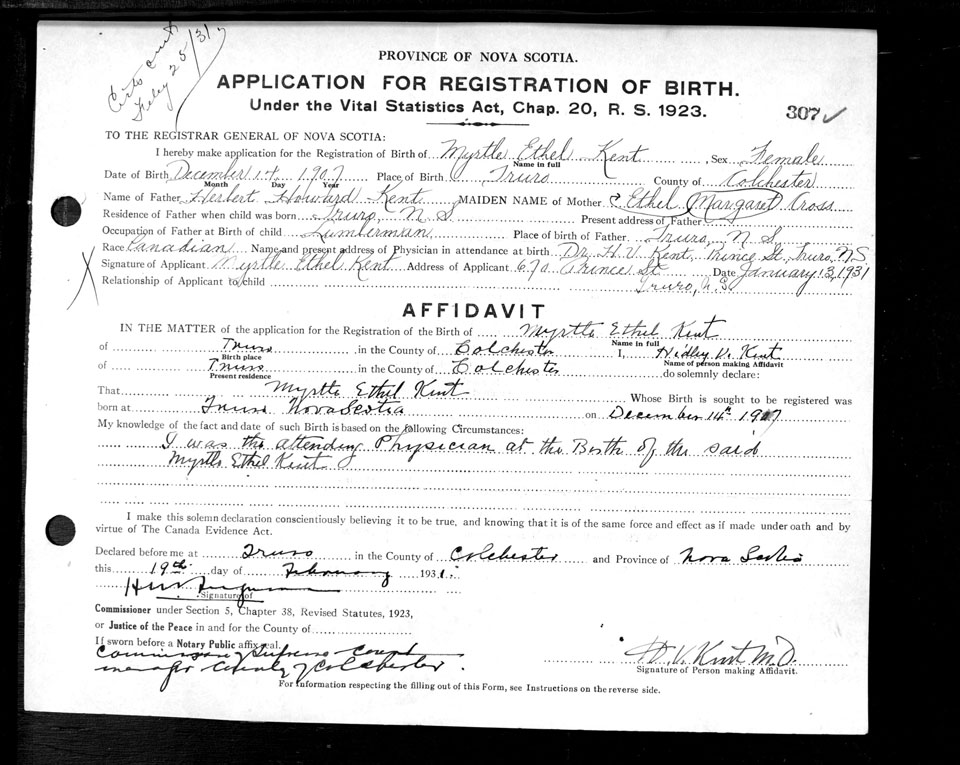 Certs cent
Feby 25/31
PROVINCE OF NOVA SCOTIA.
APPLICATION FOR REGISTRATION OF BIRTH.
Under the Vital Statistics Act, Chap. 20, R. S. 1923.
307 ✓
TO THE REGISTRAR GENERAL OF NOVA SCOTIA:
I hereby make application for the Registration of Birth of Myrtle Ethel Kent Sex Female
Name in full
Date of Birth December 14, 1907 Place of Birth Truro County of Colchester
Month Day Year
Name of Father Herbert Howard Kent MAIDEN NAME of Mother Ethel Margaret Cross
Residence of Father when child was born Truro, N S Present address of Father
Occupation of Father at Birth of child Lumberman Place of birth of Father Truro, N S
Race Canadian Name and present address of Physician in attendance at birth Dr. H. V. Kent, Prince St, Truro, N.S.
Signature of Applicant Myrtle Ethel Kent Address of Applicant 670 Prince St Date January 13, 1931
Relationship of Applicant to child Truro, N.S.
AFFIDAVIT
IN THE MATTER of the application for the Registration of the Birth of Myrtle Ethel Kent
Name in full
of Truro in the County of Colchester I, Hidley V. Kent
Birth place Name of person making Affidavit
of Truro in the County of Colchester do solemnly declare:
Present residence
That Myrtle Ethel Kent Whose Birth is sought to be registered was
born at Truro Nova Scotia on December 14th 1907
My knowledge of the fact and date of such Birth is based on the following Circumstances:
I was the attending Physician at the Birth of the said
Myrtle Ethel Kent
I make this solemn declaration conscientiously believing it to be true, and knowing that it is of the same force and effect as if made under oath and by
virtue of The Canada Evidence Act.
Declared before me at Truro in the County of Colchester and Province of Nova Scotia
this 19th day of February 1931.
Signature of
Commissioner under Section 5, Chapter 38, Revised Statutes, 1923,
or Justice of the Peace in and for the County of
If sworn before a Notary Public affix seal.
Commissioner of Supreme Court
County of Colchester.
H. V. Kent M.D.
Signature of Person making Affidavit.
For Information respecting the filling out of this Form, see Instructions on the reverse side.